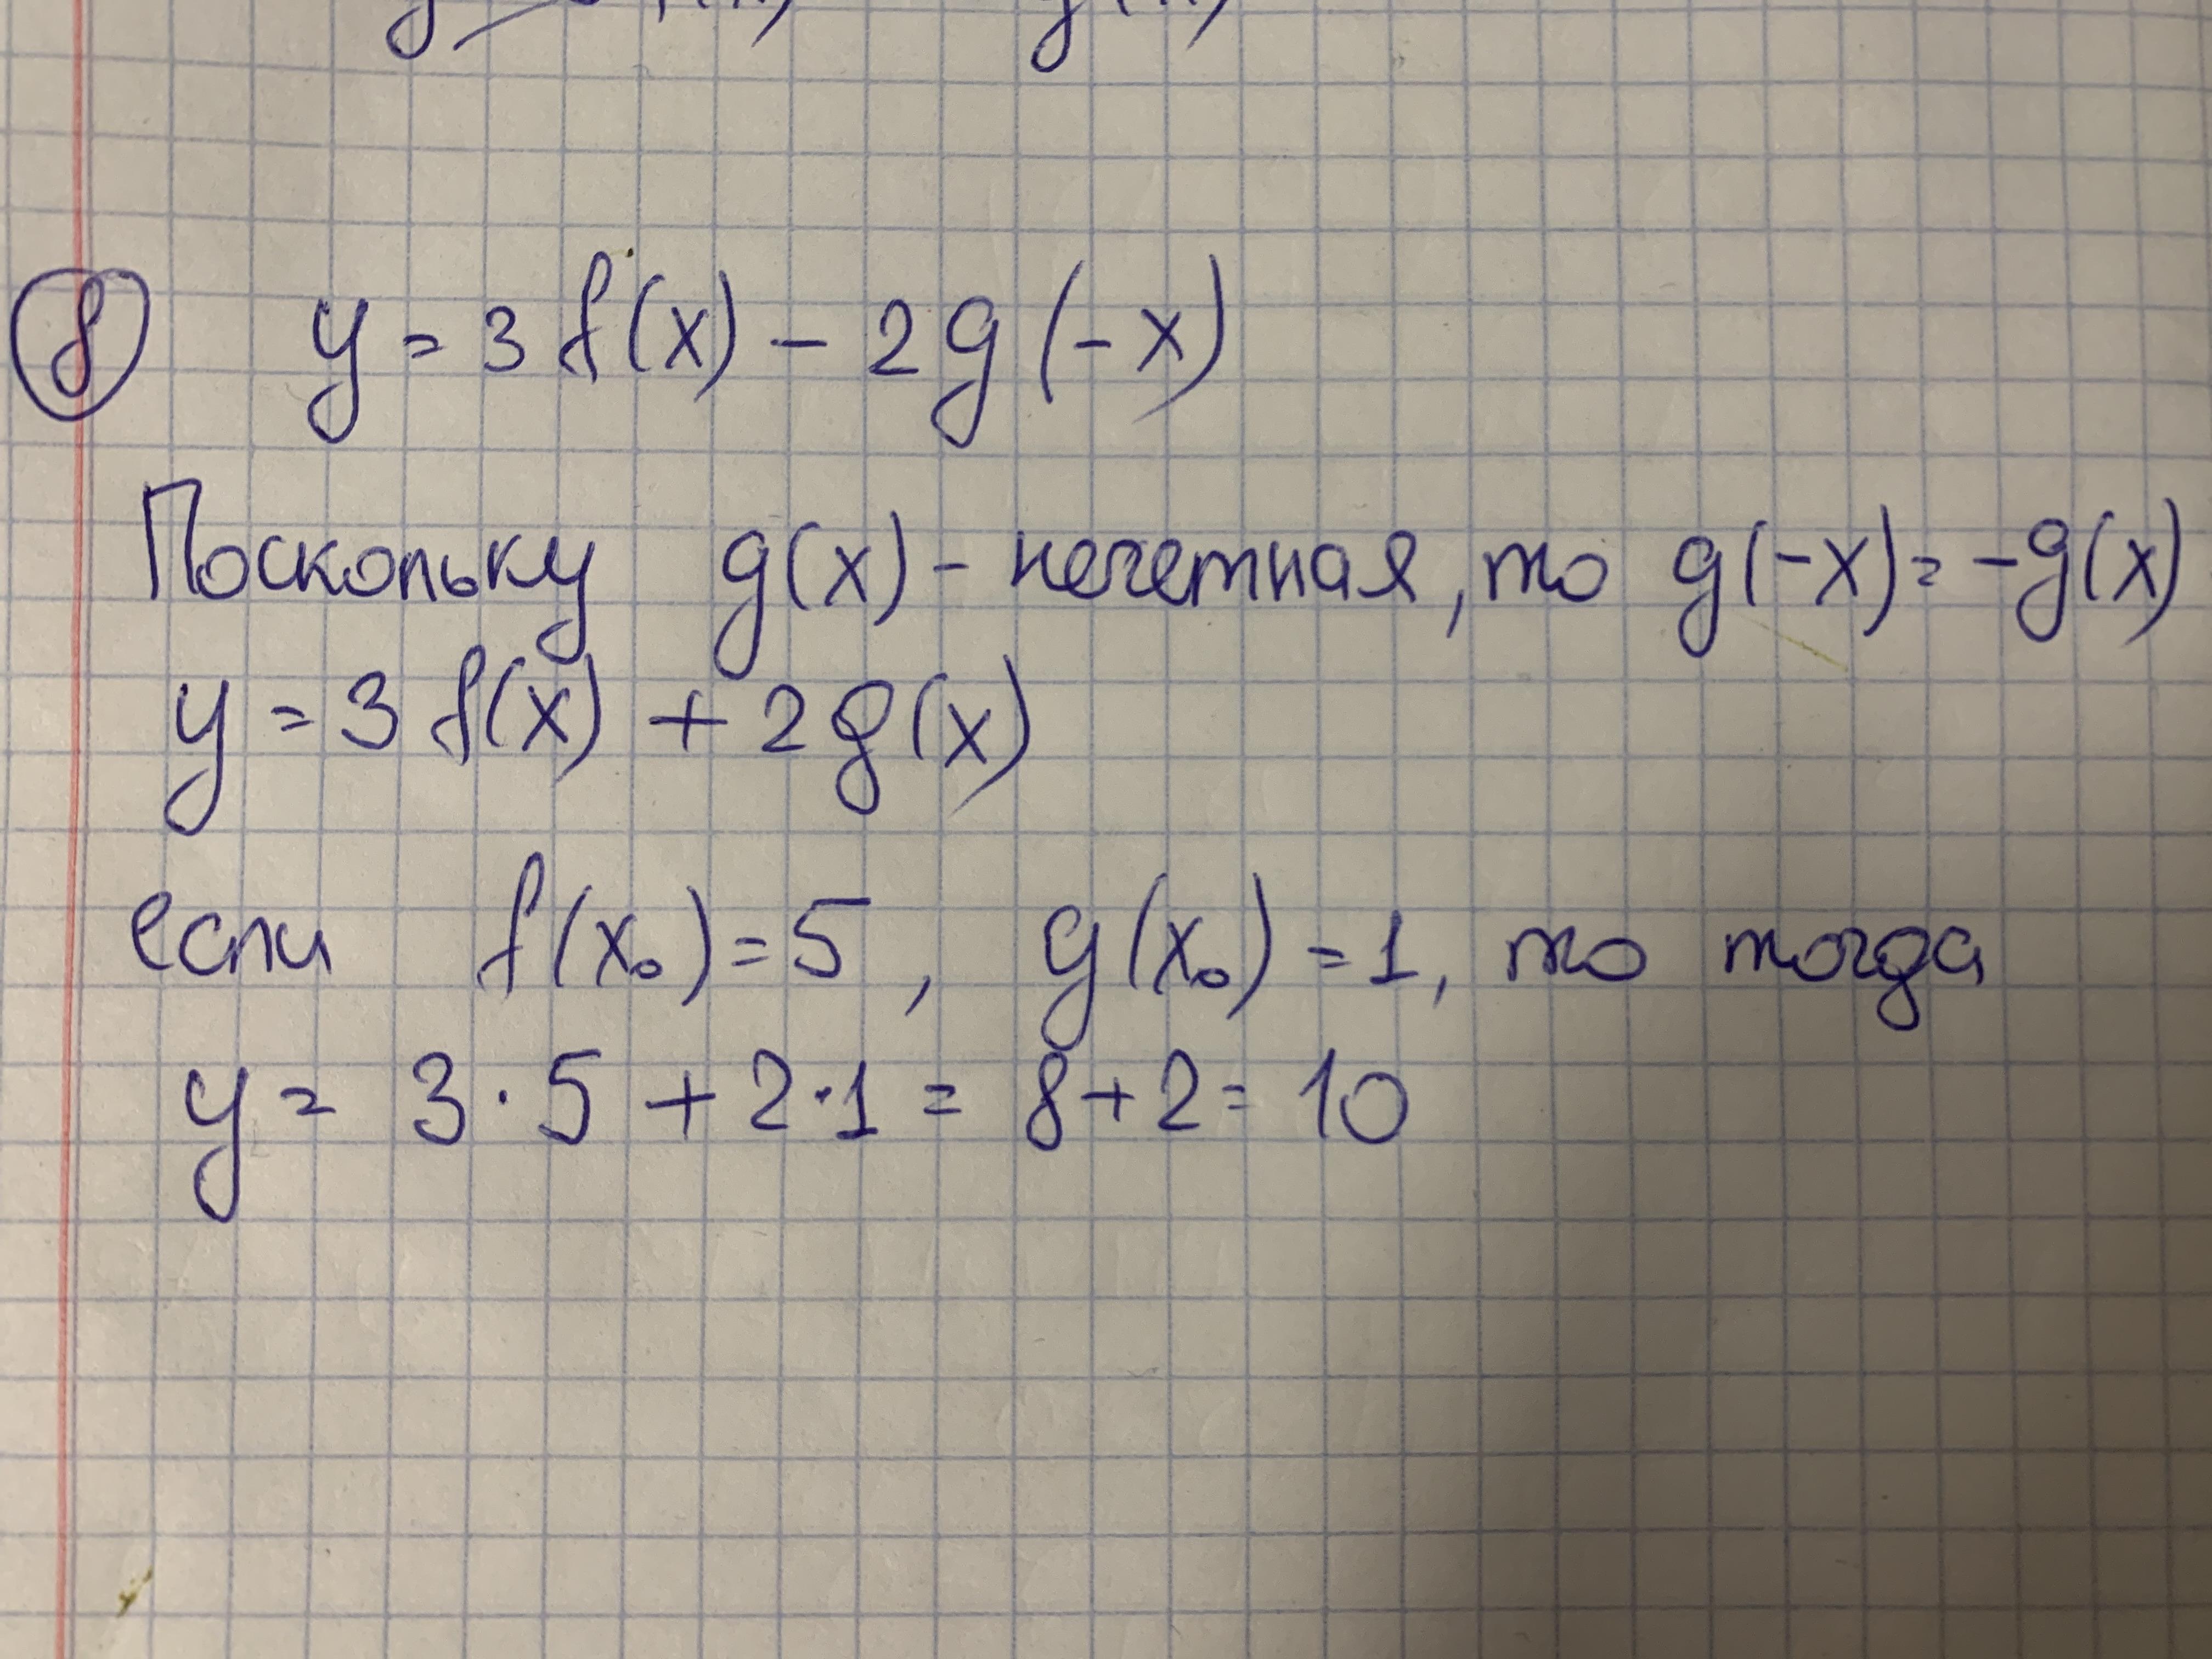 ⑧ y = 3 f(x) - 2g(-x)
Поскольку g(x) - нечетная, то g(-x) = -g(x)
y = 3 f(x) + 2g(x)
если f(x₀) = 5, g(x₀) = 1, то тогда
y = 3·5 + 2·1 = 8+2 = 10